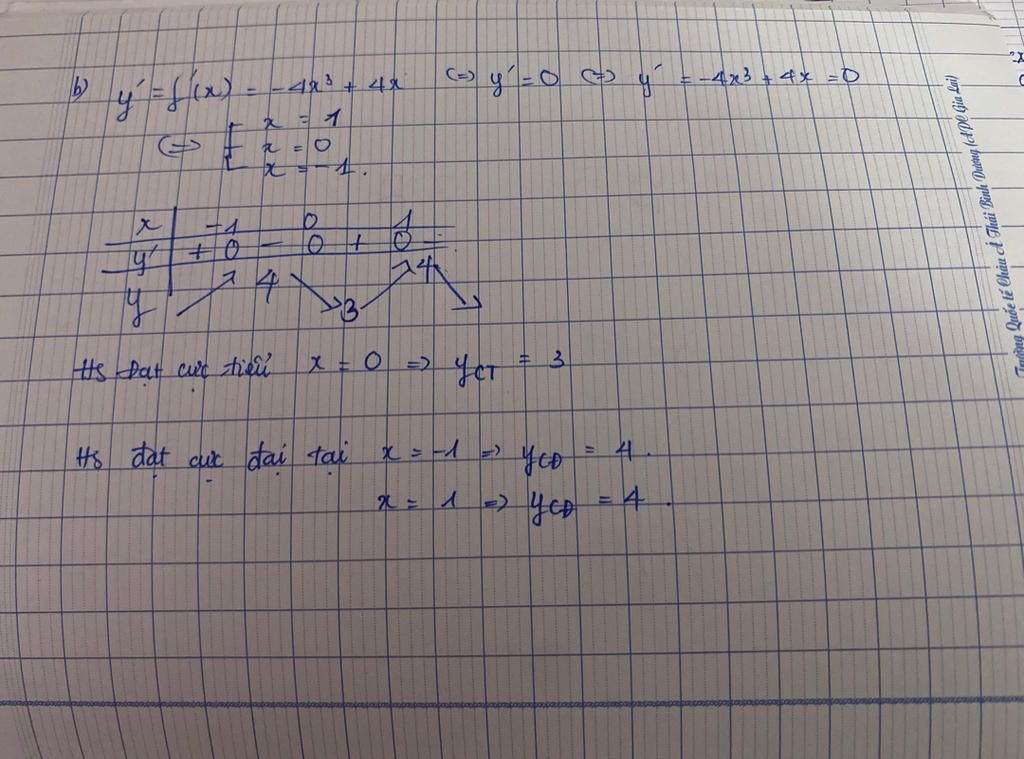 b) y' = f'(x) = -4x³ + 4x (=) y' = 0 (=) y' = -4x³ + 4x = 0
(=) [ x = 1
x = 0
x = -1.
x | -1 0 1
y' | + 0 - 0 + 0 -
y | ↗ 4 ↘ 3 ↗ 4 ↘
Hs Đạt cực tiểu x = 0 => yCT = 3
Hs đạt cực đại tại x = -1 => yCĐ = 4.
x = 1 => yCĐ = 4.
Trường Quốc tế Châu Á Thái Bình Dương (APC Gia Lai)